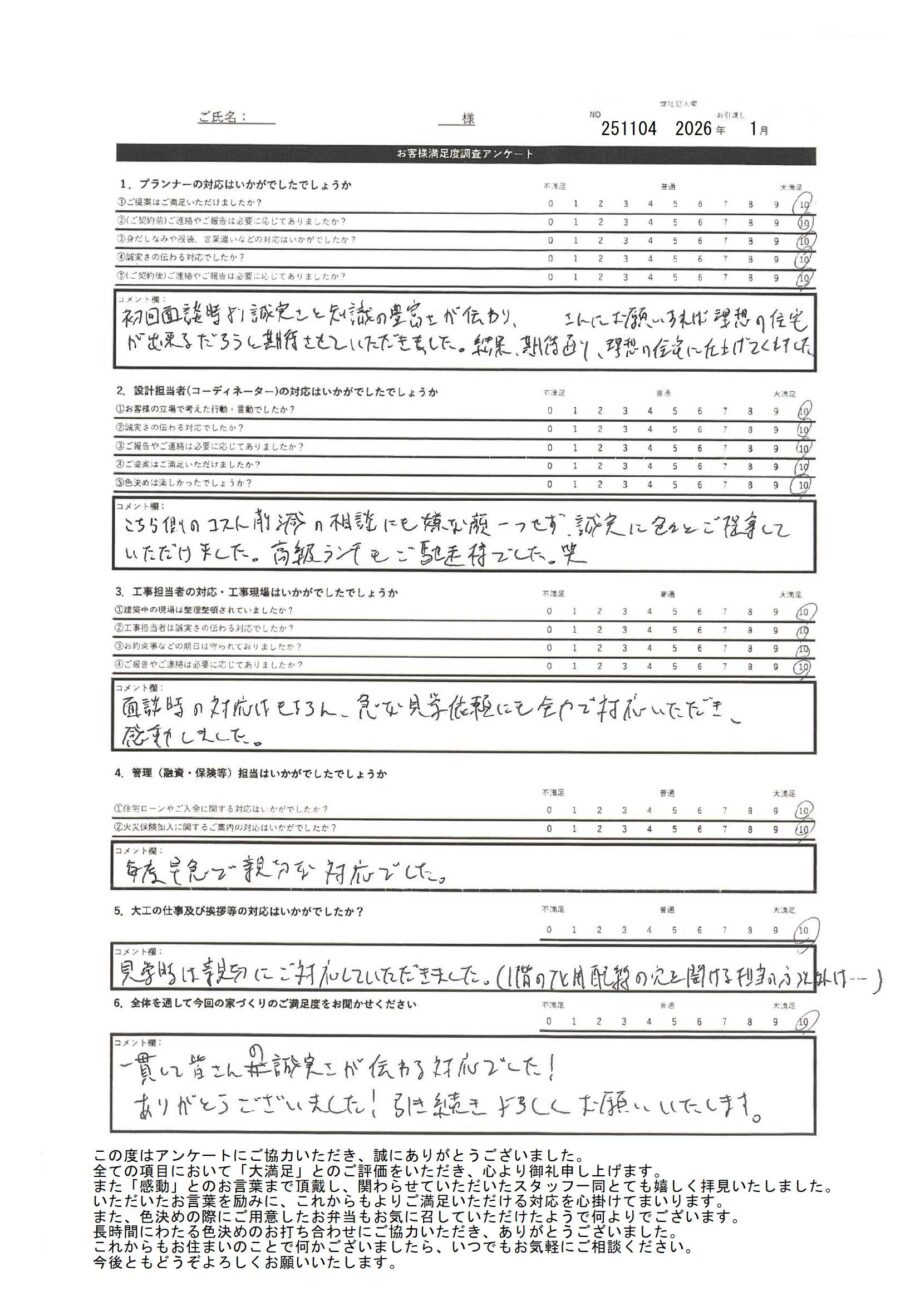 弊社記入欄
ご氏名： 様 NO 251104 お引渡し 2026年 1月
お客様満足度調査アンケート
1. プランナーの対応はいかがでしたでしょうか 不満足 普通 大満足
①ご提案はご満足いただけましたか？ 0 1 2 3 4 5 6 7 8 9 10
②(ご契約前)ご連絡やご報告は必要に応じてありましたか？ 0 1 2 3 4 5 6 7 8 9 10
③身だしなみや服装、言葉遣いなどの対応はいかがでしたか？ 0 1 2 3 4 5 6 7 8 9 10
④誠実さの伝わる対応でしたか？ 0 1 2 3 4 5 6 7 8 9 10
⑤(ご契約後)ご連絡やご報告は必要に応じてありましたか？ 0 1 2 3 4 5 6 7 8 9 10
コメント欄：
初回面談時より誠実さと知識の豊富さが伝わり、 さんにお願いすれば理想の住宅
が出来るだろうと期待させていただきました。結果、期待通り、理想の住宅に仕上げてくれました
2. 設計担当者(コーディネーター)の対応はいかがでしたでしょうか 不満足 普通 大満足
①お客様の立場で考えた行動・言動でしたか？ 0 1 2 3 4 5 6 7 8 9 10
②誠実さの伝わる対応でしたか？ 0 1 2 3 4 5 6 7 8 9 10
③ご報告やご連絡は必要に応じてありましたか？ 0 1 2 3 4 5 6 7 8 9 10
④ご提案はご満足いただけましたか？ 0 1 2 3 4 5 6 7 8 9 10
⑤色決めは楽しかったでしょうか？ 0 1 2 3 4 5 6 7 8 9 10
コメント欄：
こちら側のコスト削減の相談にも嫌な顔一つせず、誠実に色々とご提案して
いただけました。高級ランチもご馳走様でした。笑
3. 工事担当者の対応・工事現場はいかがでしたでしょうか 不満足 普通 大満足
①建築中の現場は整理整頓されていましたか？ 0 1 2 3 4 5 6 7 8 9 10
②工事担当者は誠実さの伝わる対応でしたか？ 0 1 2 3 4 5 6 7 8 9 10
③お約束事などの期日は守られておりましたか？ 0 1 2 3 4 5 6 7 8 9 10
④ご報告やご連絡は必要に応じてありましたか？ 0 1 2 3 4 5 6 7 8 9 10
コメント欄：
面談時の対応はもちろん、急な見学依頼にも全力で対応いただき、
感動しました。
4. 管理（融資・保険等）担当はいかがでしたでしょうか
不満足 普通 大満足
①住宅ローンやご入会に関する対応はいかがでしたか？ 0 1 2 3 4 5 6 7 8 9 10
②火災保険加入に関するご案内の対応はいかがでしたか？ 0 1 2 3 4 5 6 7 8 9 10
コメント欄：
毎度早急で親切な対応でした。
5. 大工の仕事及び挨拶等の対応はいかがでしたか？ 不満足 普通 大満足
0 1 2 3 4 5 6 7 8 9 10
コメント欄：
見学時は親切にご対応していただきました。(1階のTV用配線の穴を開ける担当の方以外は…)
6. 全体を通して今回の家づくりのご満足度をお聞かせください 不満足 普通 大満足
0 1 2 3 4 5 6 7 8 9 10
コメント欄：
一貫して皆さんの誠実さが伝わる対応でした！
ありがとうございました！引き続きよろしくお願いいたします。
この度はアンケートにご協力いただき、誠にありがとうございました。
全ての項目において「大満足」とのご評価をいただき、心より御礼申し上げます。
また「感動」とのお言葉まで頂戴し、関わらせていただいたスタッフ一同とても嬉しく拝見いたしました。
いただいたお言葉を励みに、これからもよりご満足いただける対応を心掛けてまいります。
また、色決めの際にご用意したお弁当もお気に召していただけたようで何よりでございます。
長時間にわたる色決めのお打ち合わせにご協力いただき、ありがとうございました。
これからもお住まいのことで何かございましたら、いつでもお気軽にご相談ください。
今後ともどうぞよろしくお願いいたします。